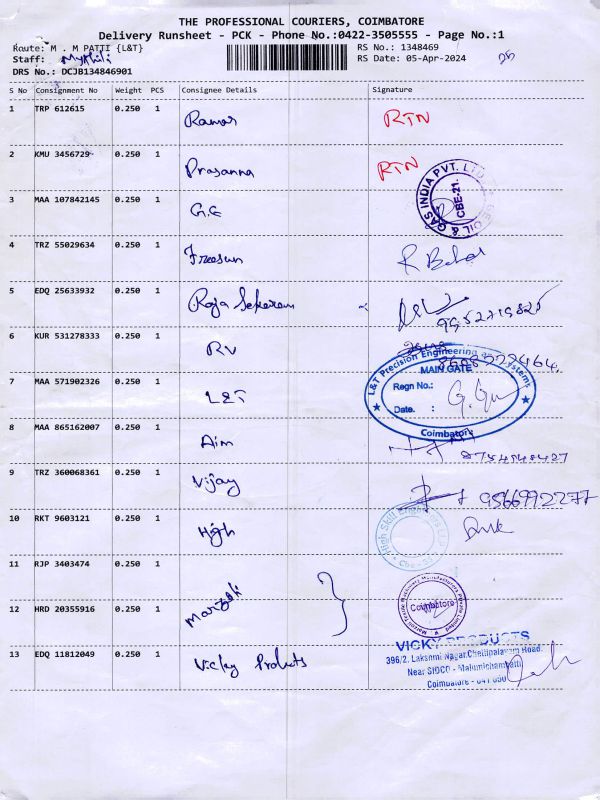 THE PROFESSIONAL COURIERS, COIMBATORE
Delivery Runsheet - PCK - Phone No.:0422-3505555 - Page No.:1
Route: M . M PATTI {L&T}
RS No.: 1348469
Staff:
RS Date: 05-Apr-2024
DRS No.: DCJB134846901
S No Consignment No Weight PCS Consignee Details Signature
1 TRP 612615 0.250 1 Raman RTN
2 KMU 3456729 0.250 1 Prasanna RTN
3 MAA 107842145 0.250 1 G.E
GAS INDIA PVT. LTD
OIL &
CBE-21.
4 TRZ 55029634 0.250 1 Freesun
5 EDQ 25633932 0.250 1 Raja Sekaram
9952719825
6 KUR 531278333 0.250 1 RV
L&T Precision Engineering Systems
MAIN GATE
Regn No.:
Date. :
Coimbatore
7 MAA 571902326 0.250 1 L&T
8 MAA 865162007 0.250 1 Aim
9 TRZ 360068361 0.250 1 Vijay 9566992277
10 RKT 9603121 0.250 1 High
High Skill
11 RJP 3403474 0.250 1
12 HRD 20355916 0.250 1
Coimbatore
13 EDQ 11812049 0.250 1 Vicky Products
VICKY PRODUCTS
396/2, Lakshmi Nagar, Chettipalayam Road,
Near SIDCO - Malumichampatti
Coimbatore - 641 050